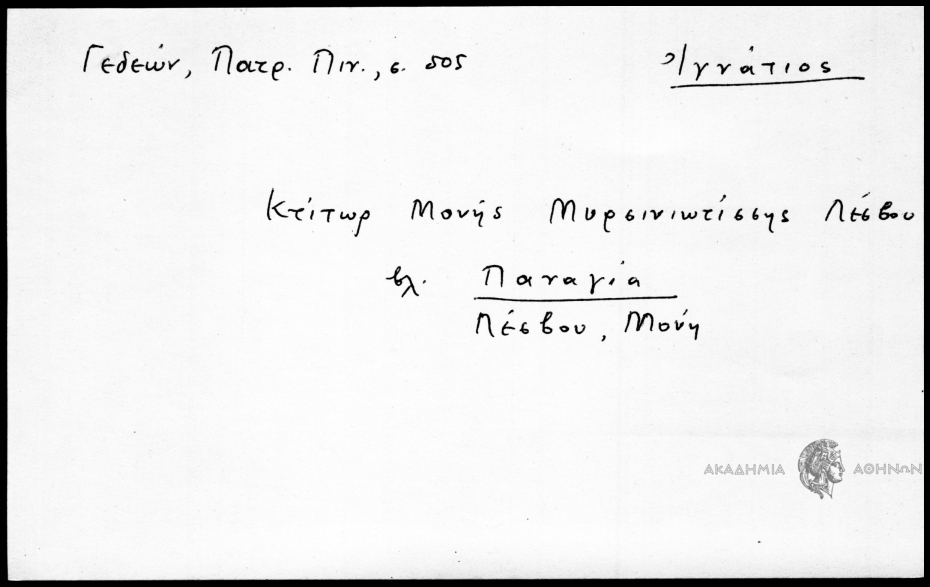 Γεδεών, Πατρ. Πιν., σ. 505
Ἰγνάτιος
Κτίτωρ Μονῆς Μυρσινιωτίσσης Λέσβου
βλ. Παναγία
Λέσβου, Μονή
ΑΚΑΔΗΜΙΑ ΑΘΗΝΩΝ